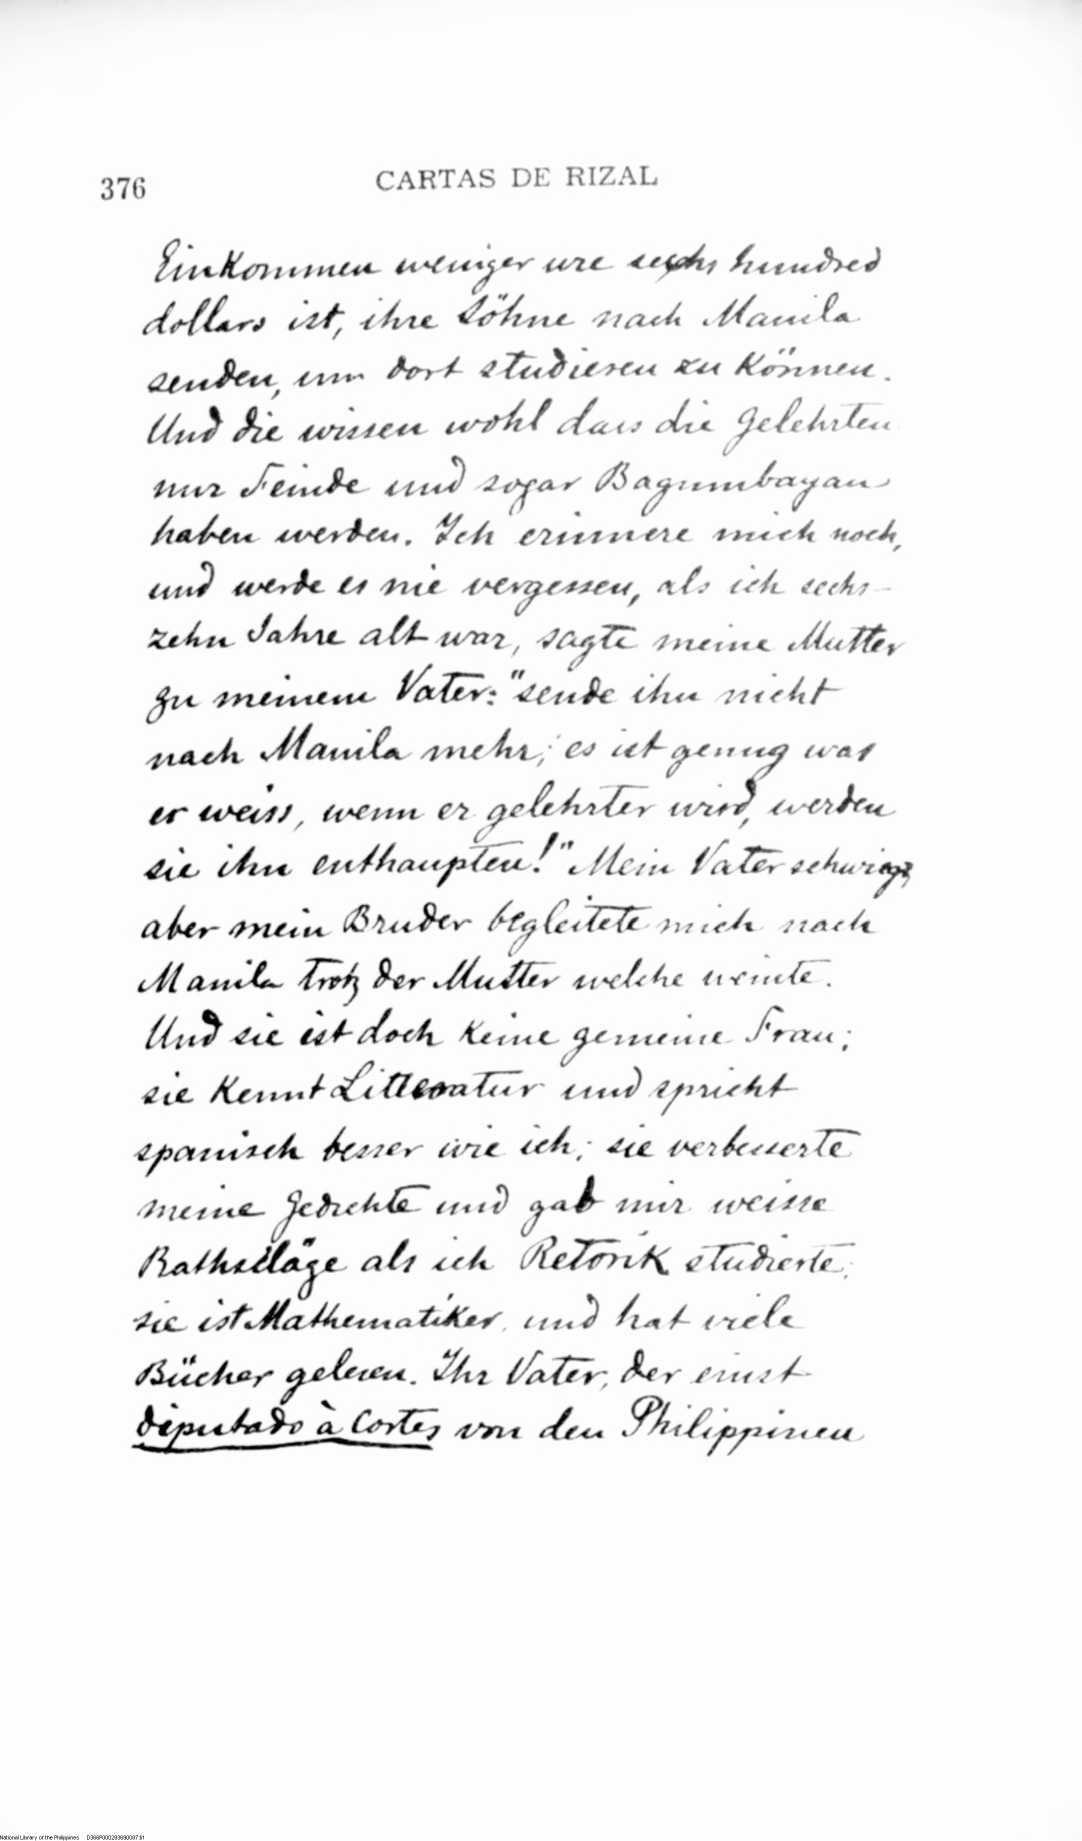 376
CARTAS DE RIZAL
Einkommen weniger wie sechs hundred
dollars ist, ihre Söhne nach Manila
senden, um dort studieren zu können.
Und die wissen wohl dass die Gelehrten
nur Feinde und sogar Bagumbayan
haben werden. Ich erinnere mich noch,
und werde es nie vergessen, als ich sechs-
zehn Jahre alt war, sagte meine Mutter
zu meinem Vater: "sende ihn nicht
nach Manila mehr; es ist genug was
er weiss, wenn er gelehrter wird, werden
sie ihn enthaupten!" Mein Vater schwieg,
aber mein Bruder begleitete mich nach
Manila trotz der Mutter welche weinte.
Und sie ist doch keine gemeine Frau;
sie kennt Litteratur und spricht
spanisch besser wie ich; sie verbesserte
meine Gedichte und gab mir weisse
Rathsläge als ich Retorik studierte;
sie ist Mathematiker und hat viele
Bücher gelesen. Ihr Vater, der einst
diputado à Cortes von den Philippinen
National Library of the Philippines